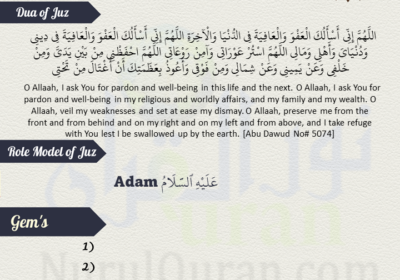 Dua of Juz
اللَّهُمَّ إِنِّي أَسْأَلُكَ الْعَفْوَ وَالْعَافِيَةَ فِي الدُّنْيَا وَالْآخِرَةِ اللَّهُمَّ إِنِّي أَسْأَلُكَ الْعَفْوَ وَالْعَافِيَةَ فِي دِينِي
وَدُنْيَايَ وَأَهْلِي وَمَالِي اللَّهُمَّ اسْتُرْ عَوْرَاتِي وَآمِنْ رَوْعَاتِي اللَّهُمَّ احْفَظْنِي مِنْ بَيْنِ يَدَيَّ وَمِنْ
خَلْفِي وَعَنْ يَمِينِي وَعَنْ شِمَالِي وَمِنْ فَوْقِي وَأَعُوذُ بِعَظَمَتِكَ أَنْ أُغْتَالَ مِنْ تَحْتِي
O Allaah, I ask You for pardon and well-being in this life and the next. O Allaah, I ask You for
pardon and well-being in my religious and worldly affairs, and my family and my wealth. O
Allaah, veil my weaknesses and set at ease my dismay. O Allaah, preserve me from the
front and from behind and on my right and on my left and from above, and I take refuge
with You lest I be swallowed up by the earth. [Abu Dawud No# 5074]
Role Model of Juz
Adam عَلَيْهِ السَّلَامُ
Gem's
1)
2)
NurulQuran.com